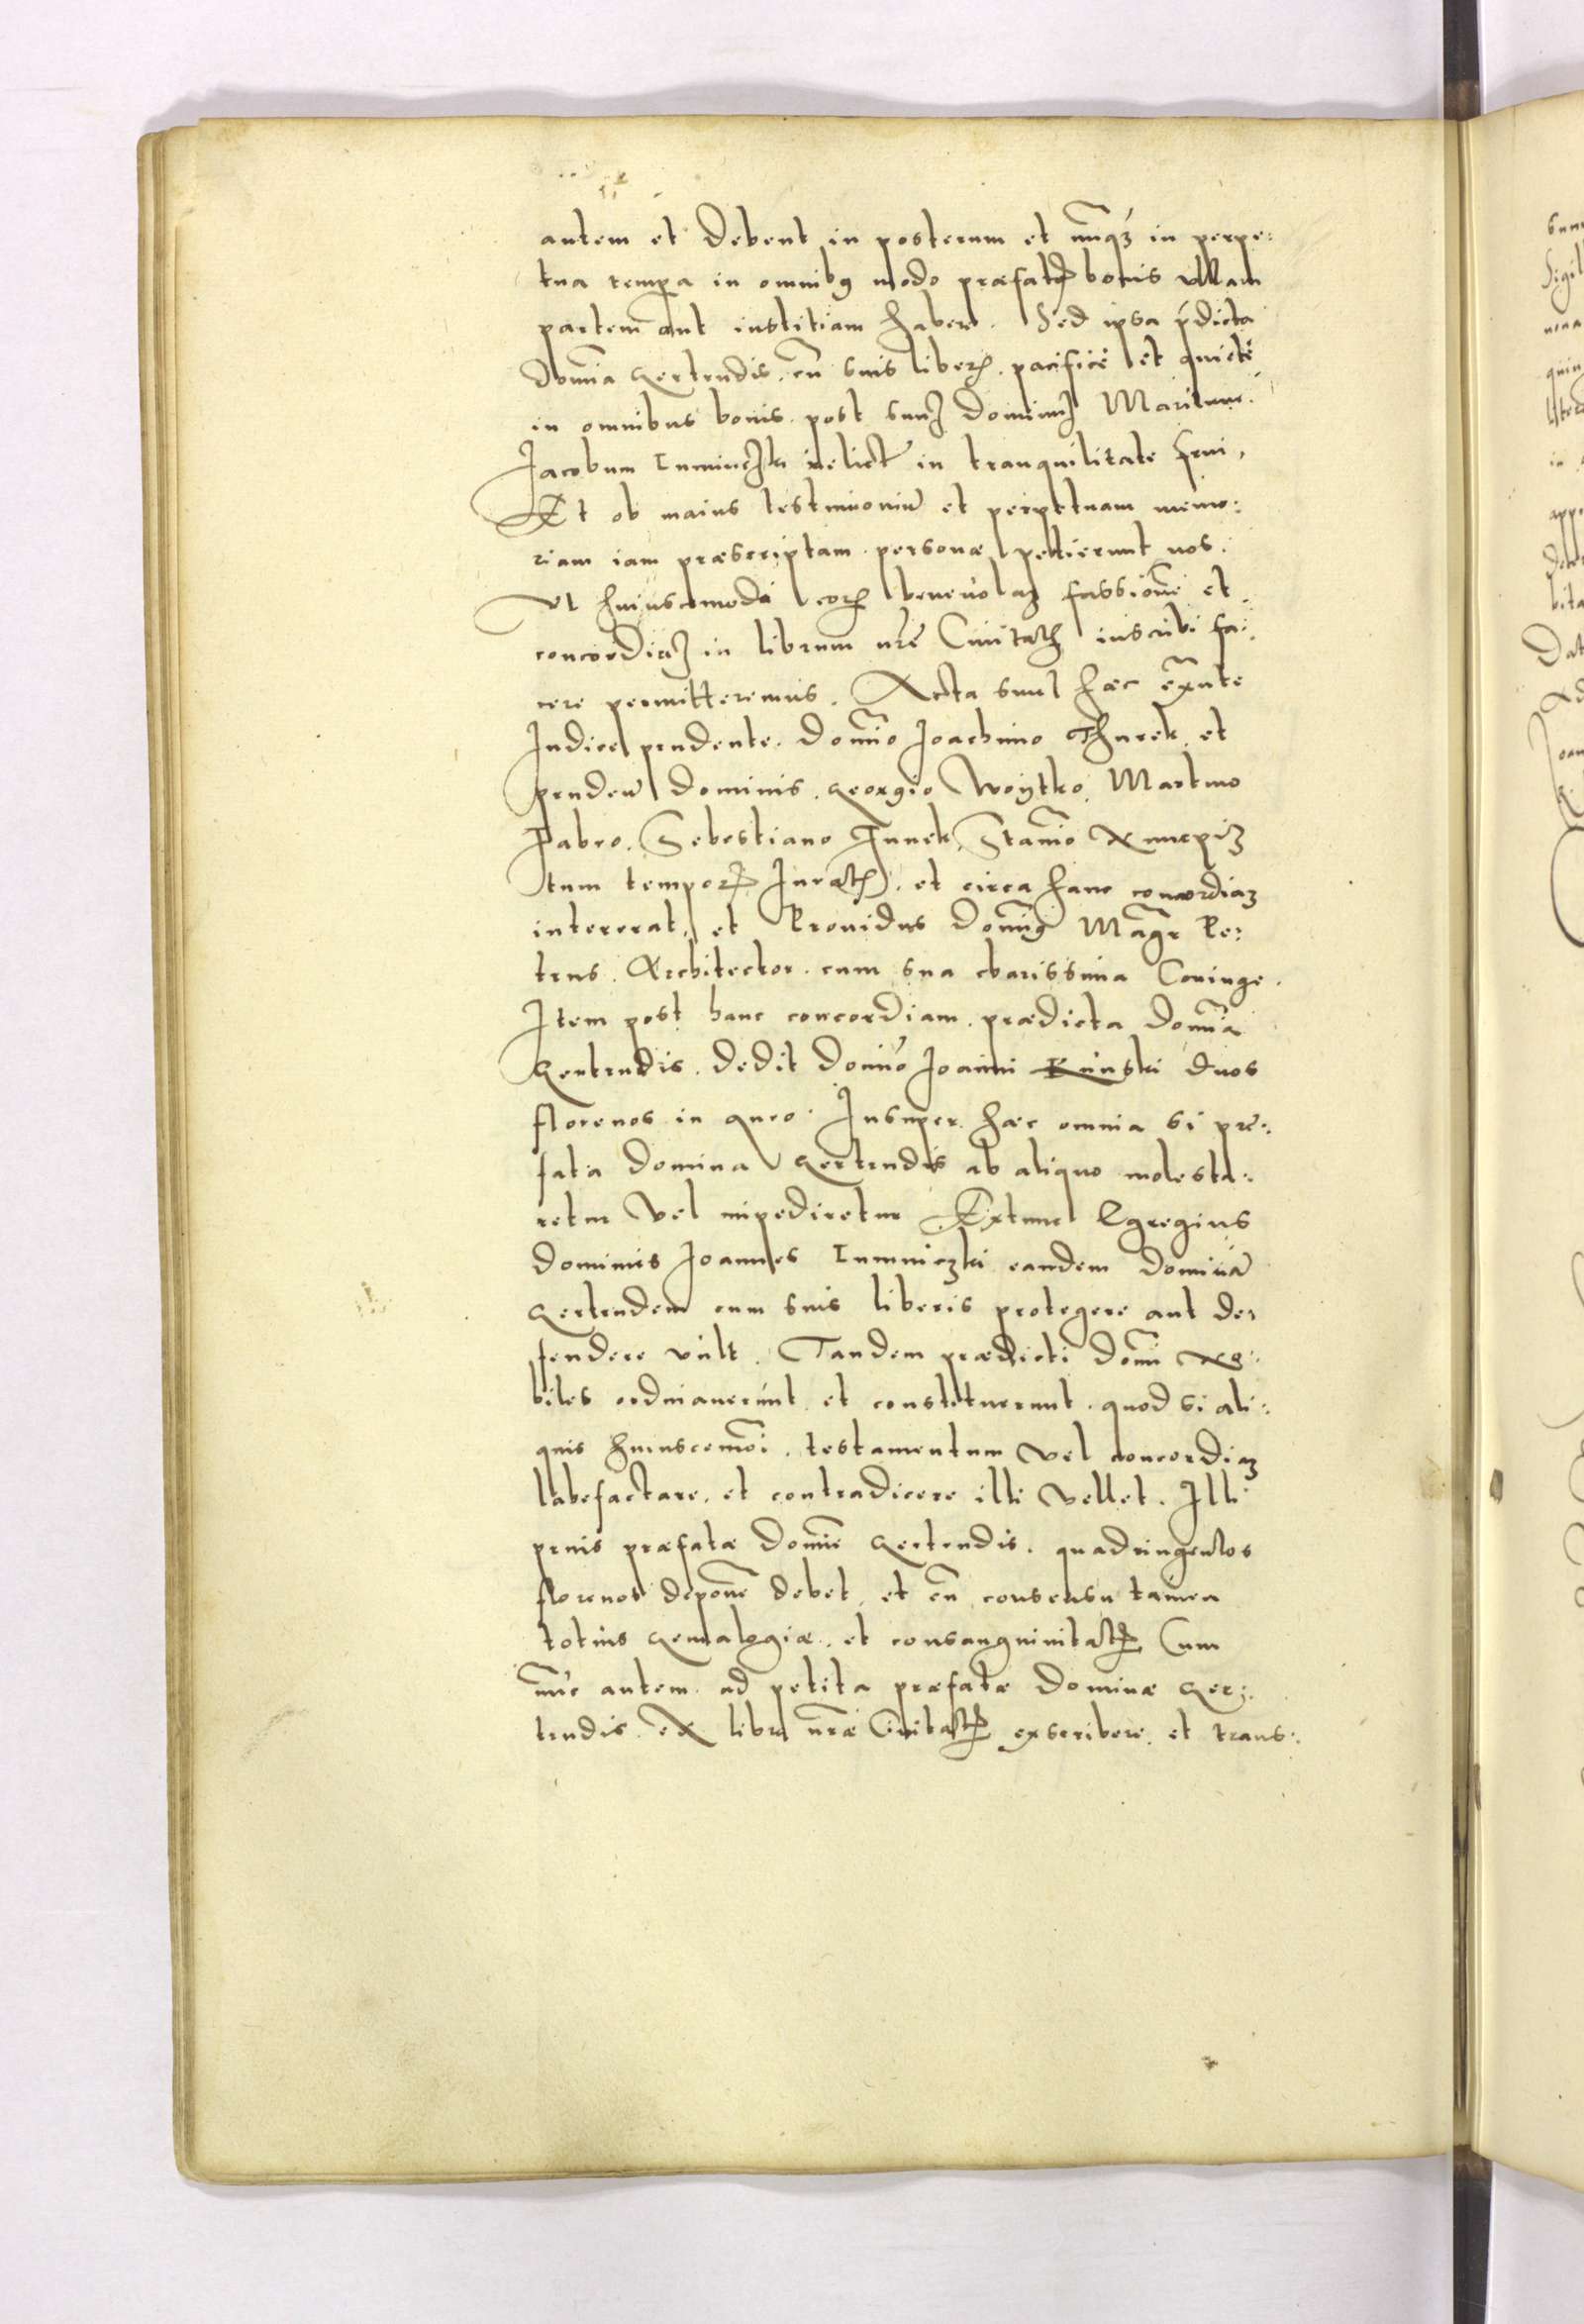 autem et debent in posterum et nunq̃ in perpe:
tua tempa in omnibꝯ modo præfatꝭ bonis ullam
partem aut iustitiam habere. Sed ipsa p̃dicta
domĩa Gertrudis. cũ suis liberꝭ. pacificè et quietè
in omnibus bonis. post suuʒ dominuʒ Maritum.
Jacobum relict̃ in tranquilitate frui,
Et ob maius testimoniũ et perpetuam memo:
riam iam præscriptam personæ petierunt nos.
Ut huiuscemodi eorꝝ benevolaʒ fassionẽ et
concordiaʒ in librum nr̃e Civitatꝭ inscribi fa:
cere permitteremus. Acta sunt hæc exñte
Judice prudente. domĩo Joachimo Thurek. et
pruden̄ dominis. Georgio Woytko. Martino
Fabro. Sebestiano Junek. Stanĩo
tum temporꝭ Juratꝭ. et circa hanc concordiaʒ
intererat. et Providus domĩꝯ Mag̃r Pe:
trus. Architector. cum sua charissima Coniuge.
Item post hanc concordiam. prædicta domĩa
Gertrudis. dedit domĩo Joanni Kunski duos
florenos in auro. Insuper hæc omnia si præ:
fata domina Gertrudis ab aliquo molesta:
retur vel impediretur Extunc Egregius
dominus Joannes eandem dominã
Gertrudem cum suis liberis protegere aut de:
fendere vult. Tandem prædicti domĩ No:
biles ordinaverunt et constituerunt. quod si ali:
quis huiuscemõi. testamentum vel concordiaʒ
labefactare. et contradicere illi vellet. Illi
prius præfatæ domĩe Gertrudis. quadringentos
florenos deponẽ debet. et cũ consensu tamen
totius genealogiæ. et consanguinitatꝭ. Cum
nũc autem. ad petita præfatæ dominæ Ger:
trudis. ex libro nr̃æ Civitatꝭ exscribere. et trans: